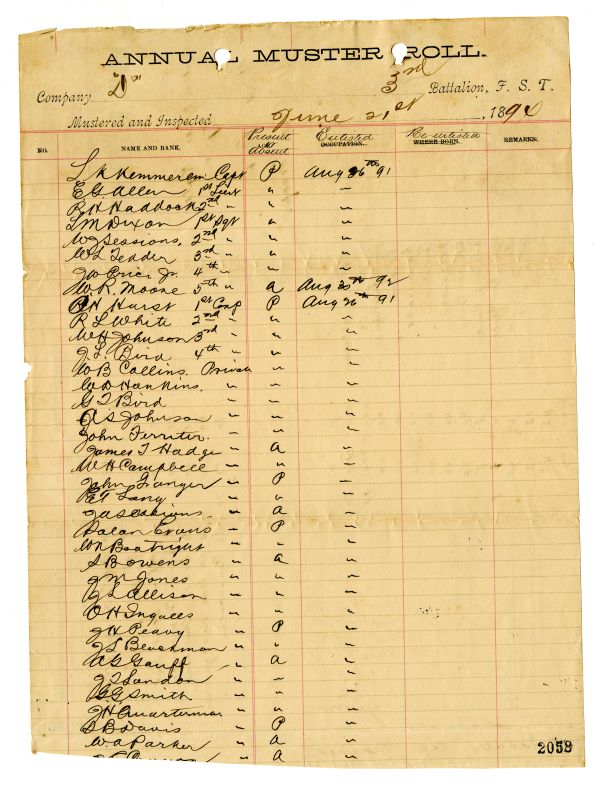 ANNUAL MUSTER ROLL.
Company "D" 3rd Battalion, F. S. T.
Mustered and Inspected June 21st, 1894
NO. NAME AND RANK. Present or Absent Enlisted OCCUPATION. Re-enlisted WHERE BORN. REMARKS.
Capt P Aug 26th 91
E G. Allen 1st Lieut " "
R H Haddock 2nd " " "
L M Dixon 1st Sgt " "
W J Sessions, 2nd " " "
W L Tedder 3rd " " "
J W Price Jr. 4th " " "
W. R. Moore 5th " a Aug 30th 92
Hurst 1st Corp P Aug 26th 91
R L White 2nd " " "
W H Johnson 3rd " " "
J. L. Bird 4th " " "
W B Collins. Private " "
W D Hankins. " " "
G T Bird " " "
A S Johnson " " "
John Ferriter. " " "
James T Hodge " a "
W H Campbell " " "
John Granger " P "
Lang " " "
" a "
Evans " P "
W N Boatright " " "
S B Owens " a "
J M Jones " " "
J L Allison " " "
O H " " "
J H Peavy " P "
J L " " "
A G Gauff " a "
J T Landon " " "
G Smith " " "
J H Quarterman " " "
S B Davis " P "
W. A Parker " a "
" a "
2058